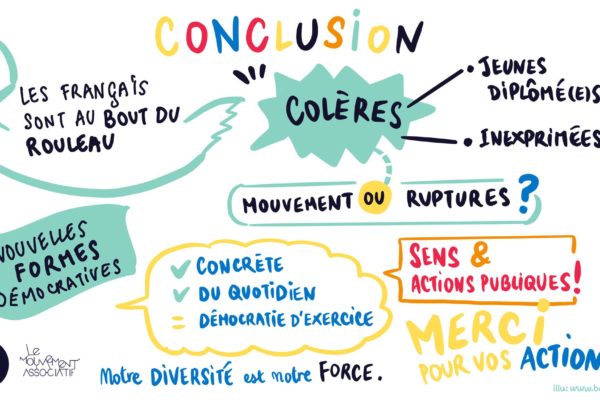 CONCLUSION
LES FRANÇAIS
SONT AU BOUT DU
ROULEAU
COLÈRES
• JEUNES
DIPLÔMÉ(E)S
• INEXPRIMÉES
MOUVEMENT OU RUPTURES ?
NOUVELLES
FORMES
DÉMOCRATIVES
CONCRÈTE
DU QUOTIDIEN
= DÉMOCRATIE D'EXERCICE
SENS &
ACTIONS PUBLIQUES!
MERCI
POUR VOS ACTION
Le
MOUVEMENT
ASSOCIATIF
Notre DIVERSITÉ est notre FORCE.
illu: www.b